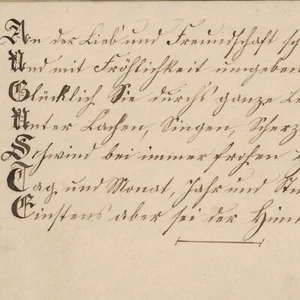 An der Lieb' und Freundschaft
Und mit Fröhlichkeit umgeben
Glücklich Sie durch's ganze
Unter Lachen, Singen, Scherz
Schwind bei immer frohen
Tag und Monat, Jahr und
Einstens aber sei der